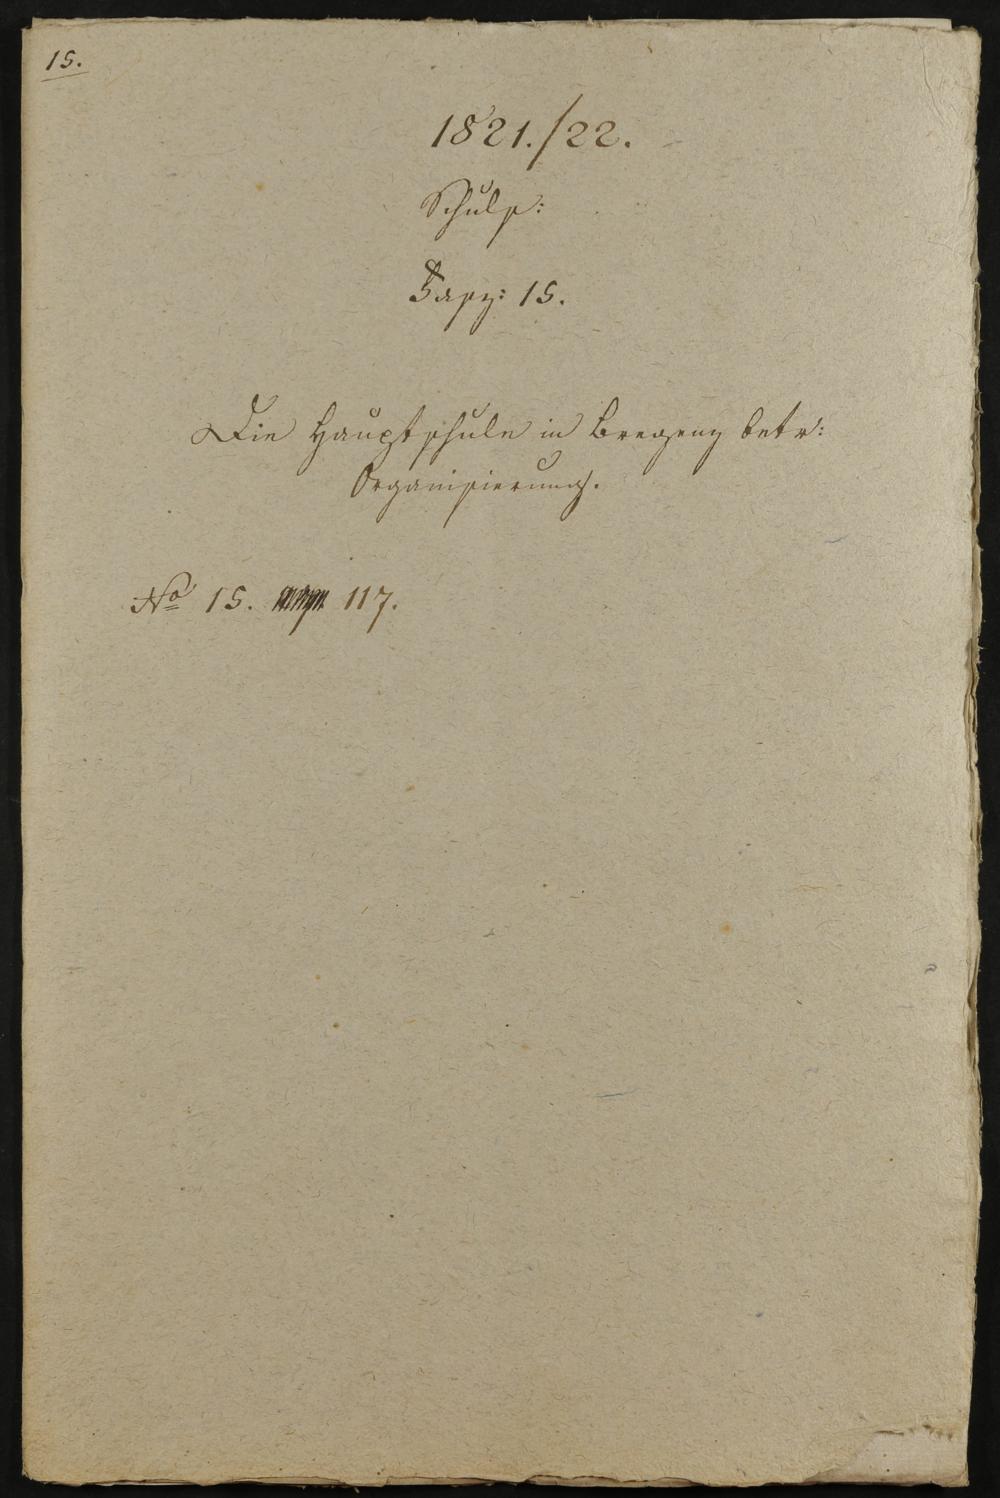 15.
1821./22.
Schuls:
Fasz: 15.
Die Hauptschule in Bregenz betr:
Organisierung.
No 15. 117.